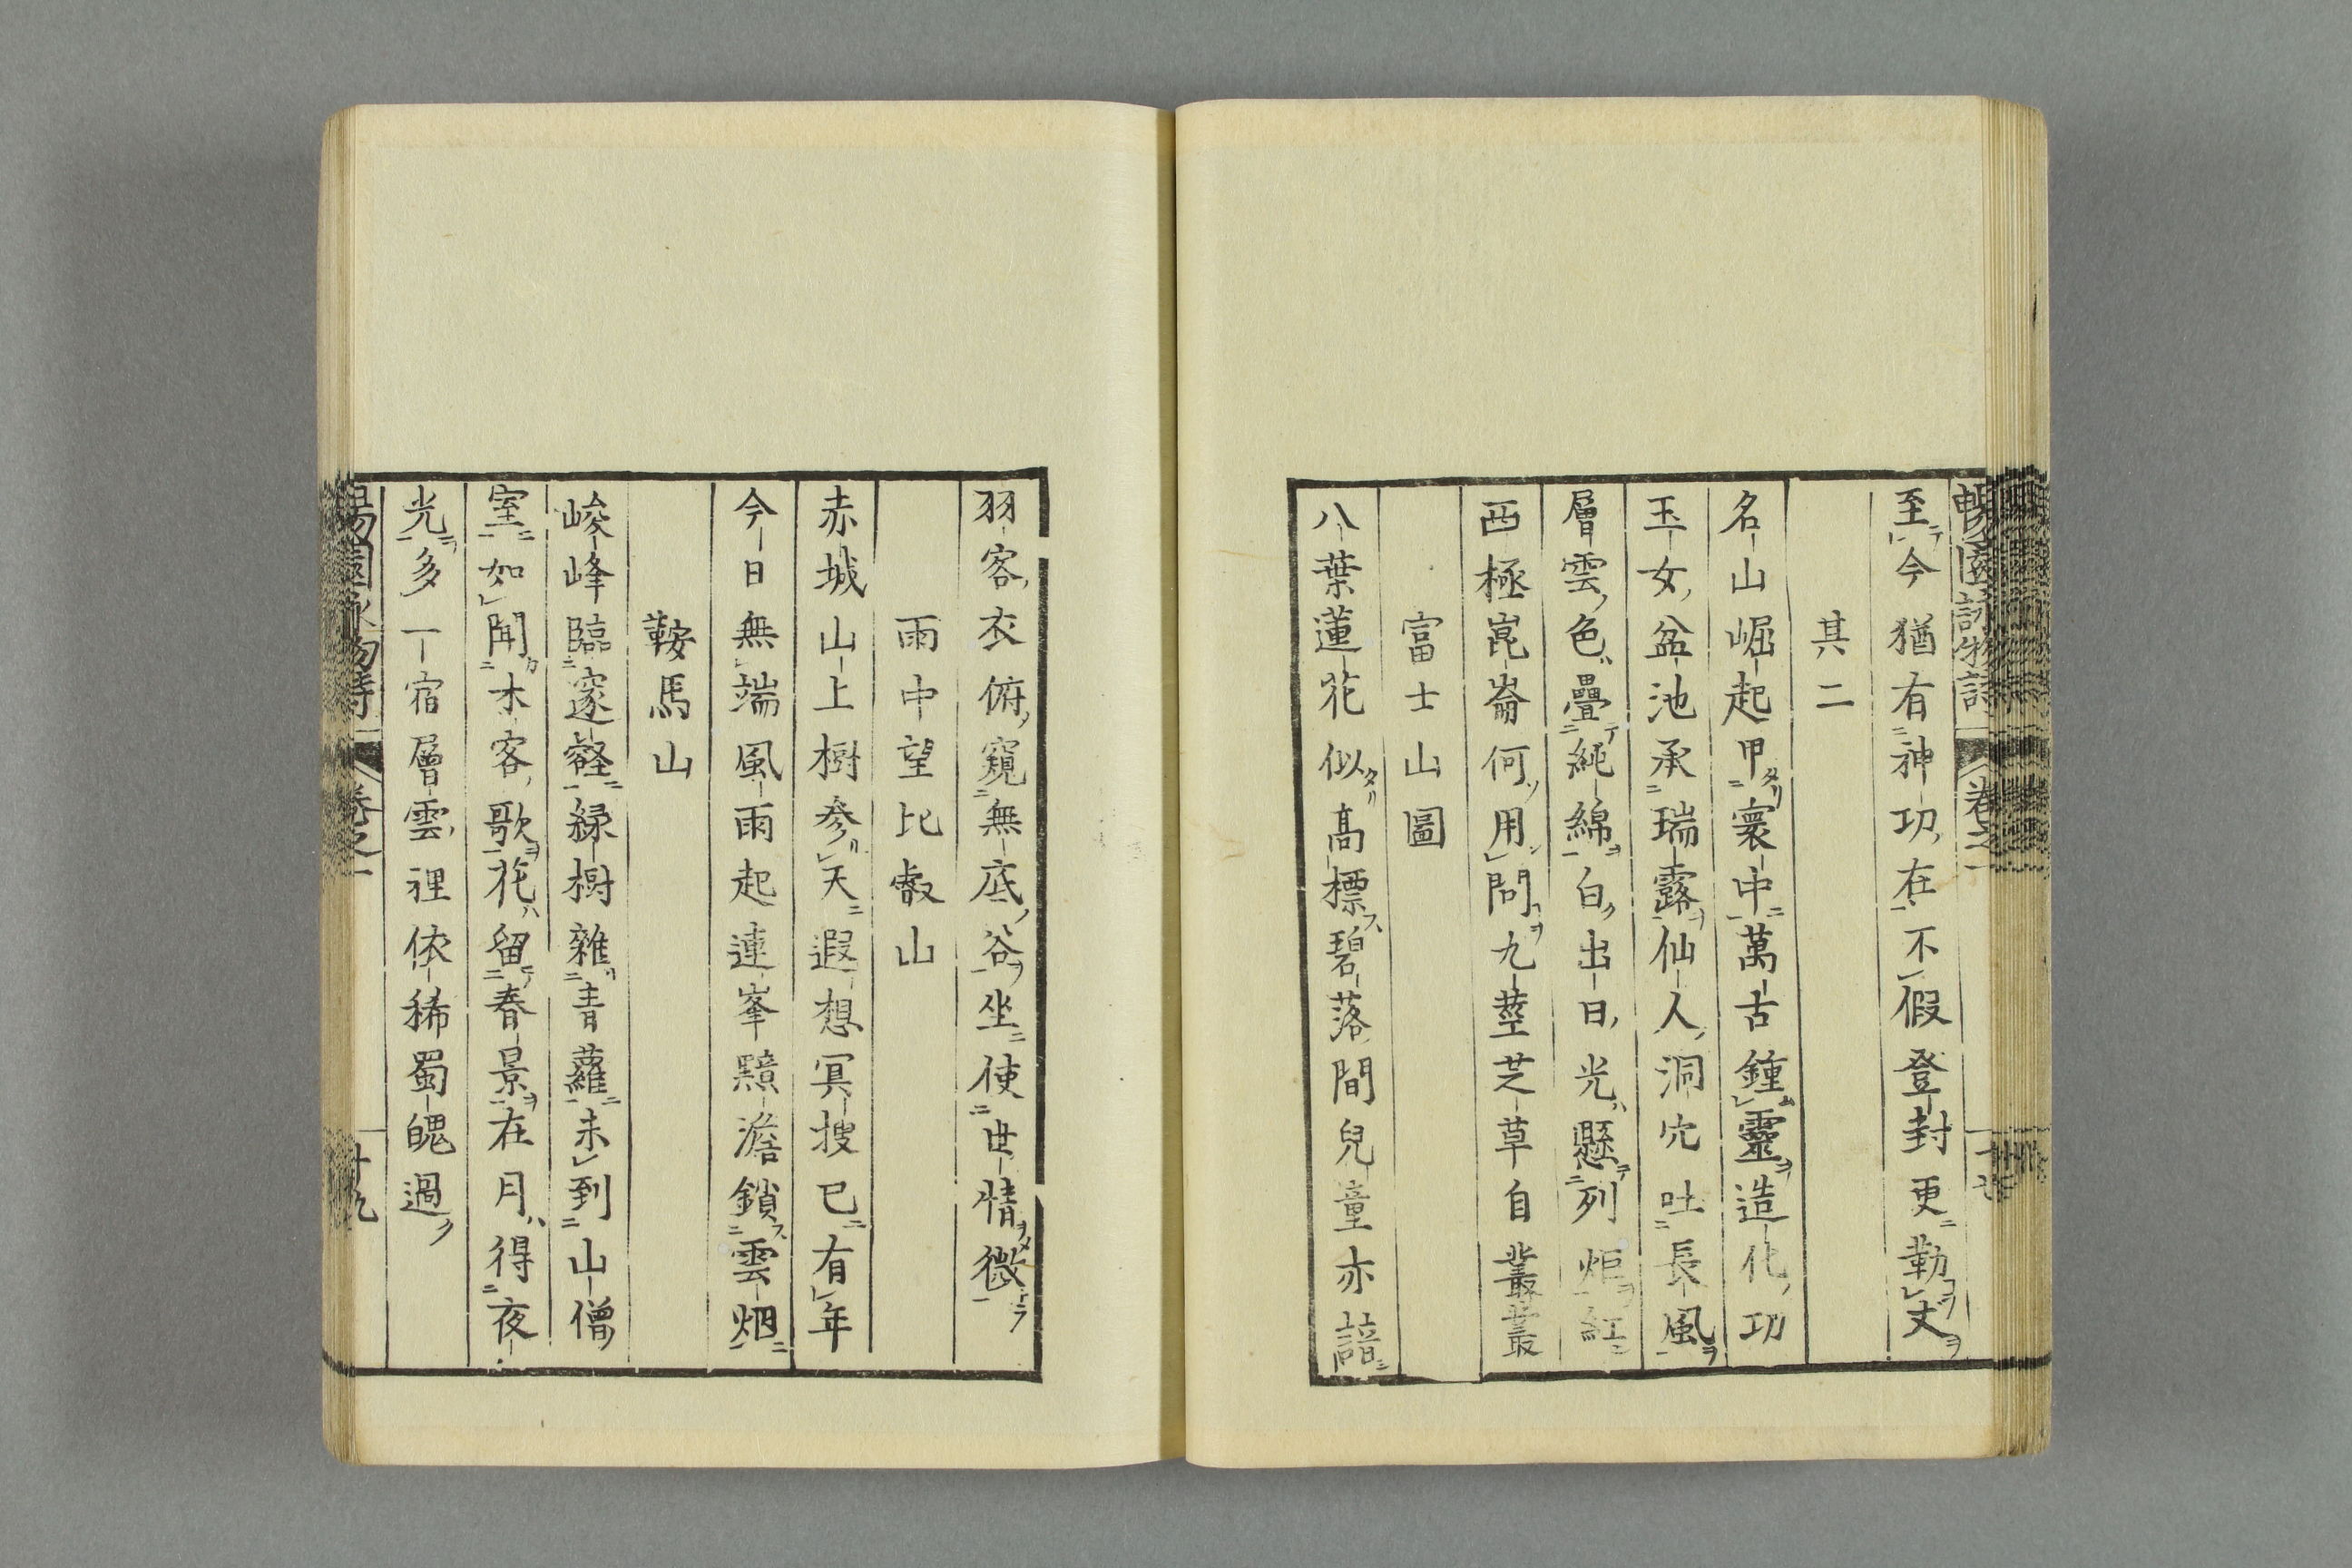 暢園詠物詩 卷之一
至今猶有神功在不假登封更勒文
其二
名山崛起甲寰中萬古鍾靈造化功
玉女盆池承瑞露仙人洞穴吐長風
層雲色疊純綿白出日光懸列炬紅
西極崑崙何用問九莖芝草自叢叢
富士山圖
八葉蓮花似高標碧落間兒童亦諳
羽客衣俯窺無底谷坐使世情微
雨中望比叡山
赤城山上樹參天遐想冥搜已有年
今日無端風雨起連峯黯澹鎖雲烟
鞍馬山
峻峰臨邃壑緑樹雜青蘿未到山僧
室如聞木客歌花留春景在月得夜
光多一宿層雲裡依稀蜀魄過
暢園詠物詩 卷之一 十九